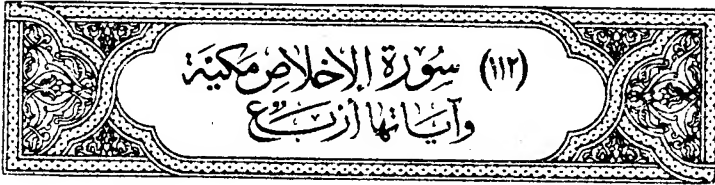 (١١٢) سُورَة الإخلَاصِ مَكيَّة
وَآيَاتها أرْبَع